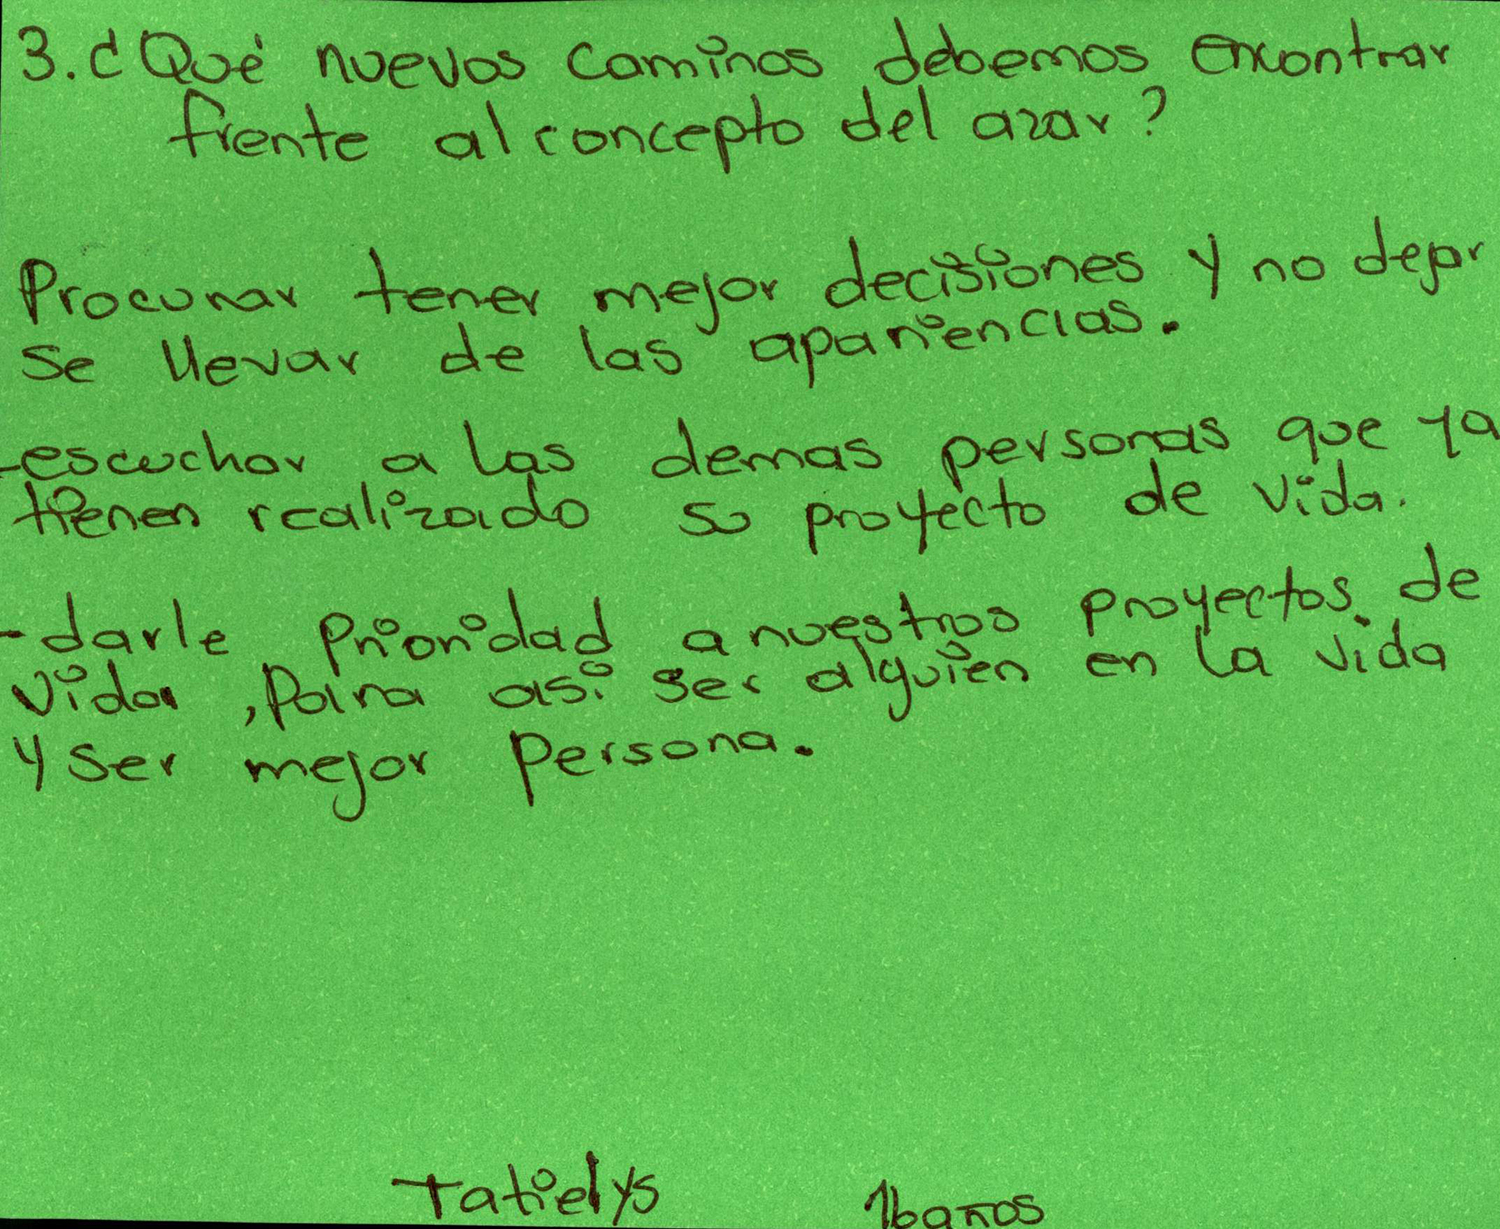 3. ¿Qué nuevos caminos debemos encontrar
frente al concepto del azar?
Procurar tener mejor decisiones y no dejar
se llevar de las apariencias.
-escuchar a las demas personas que ya
tienen realizado su proyecto de vida.
-darle prioridad a nuestros proyectos de
vida, para así ser alguien en la vida
y ser mejor persona.
Tatielys